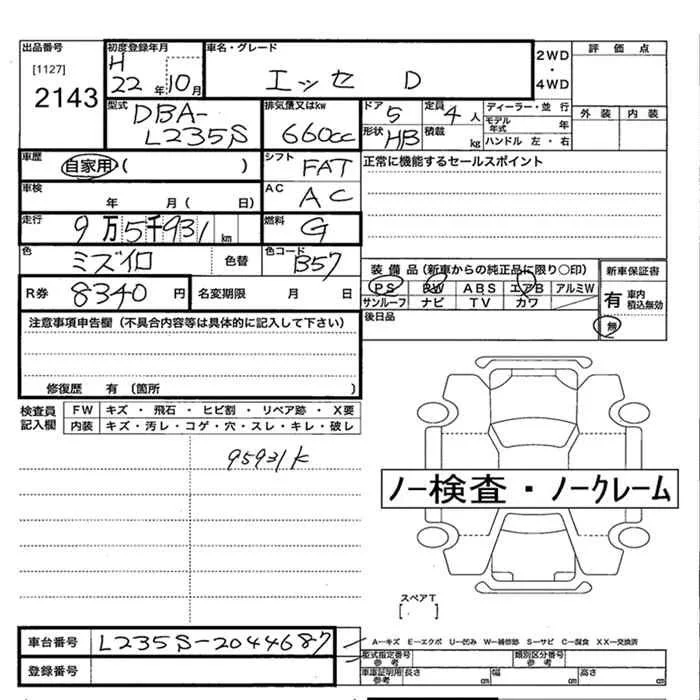 出品番号 初度登録年月 車名・グレード 2WD・4WD 評価点
[1127] H
2143 22年10月 エッセ D 外装 内装
型式 DBA-L235S 排気量又はkw 660cc ドア 5 定員 4人 ディーラー・並行
形状 HB 積載 kg モデル年式 年
ハンドル 左・右
車歴 自家用( ) シフト FAT 正常に機能するセールスポイント
車検 年 月( 日) AC AC
走行 9万5千931km 燃料 G
色 ミズイロ 色替 色コード B57 装備品(新車からの純正品に限り○印) 新車保証書
PS PW ABS エアB アルミW 有 車内積込無効
R券 8340円 名変期限 月 日 サンルーフ ナビ TV カワ 無
注意事項申告欄(不具合内容等は具体的に記入して下さい) 後日品
修復歴 有(箇所 )
検査員記入欄 FW キズ・飛石・ヒビ割・リペア跡・X要
内装 キズ・汚レ・コゲ・穴・スレ・キレ・破レ
95931K
ノー検査・ノークレーム
スペアT
[ ]
車台番号 L235S-2044687 A-キズ E-エクボ U-凹み W-補修跡 S-サビ C-腐食 XX-交換済
型式指定番号 参考 類別区分番号 参考
登録番号 車庫証明用参考 長さ cm 幅 cm 高さ cm